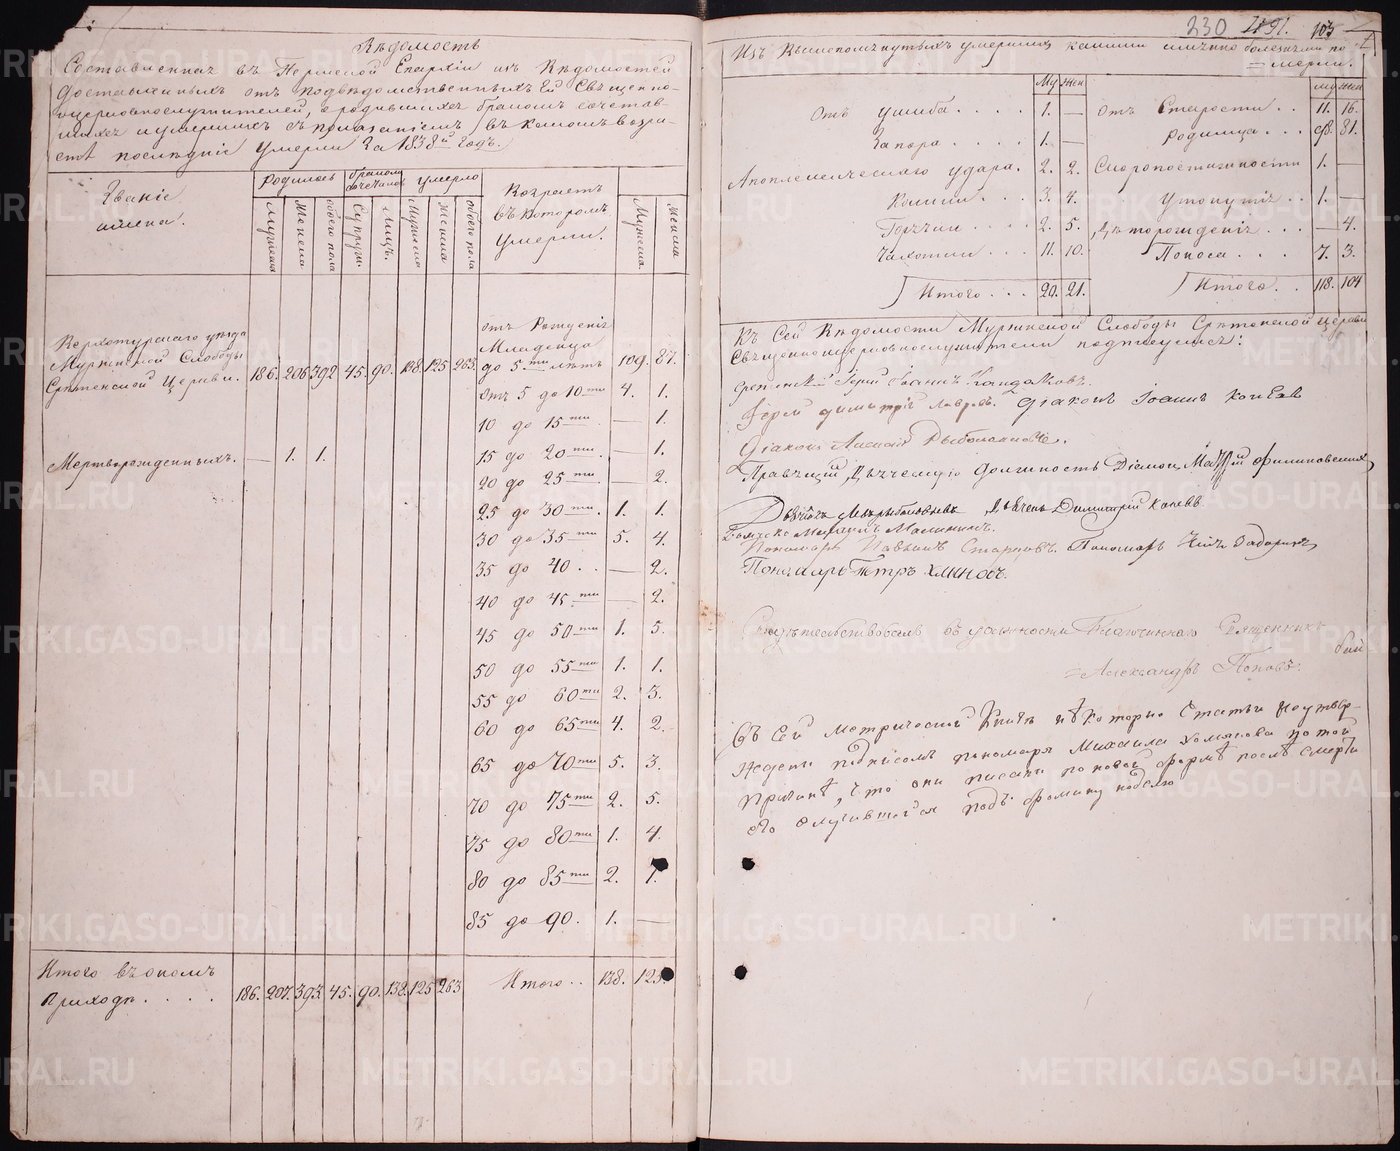 Вѣдомость
Составленная въ Пермской Епархіи изъ Вѣдомостей
доставленныхъ отъ подвѣдомственныхъ Ей Священно-
церковнослужителей, о родившихся бракомъ сочетав-
шихся и умершихъ съ показаніемъ въ какомъ возра-
стѣ послѣдніе умерли за 1838й годъ.
Званіе
имена.
Родилось
Бракомъ сочетались
умерло
Возрастъ
въ которомъ
умерли.
Мужеска
Женска
обоего пола
Супруги.
Лицъ.
Мужеска
Женска
обоего пола
Мужеска.
Женска
Верхотурскаго уѣзда
Муркинской Слободы
Срѣтенской Церкви. 186. 206 392 45. 90. 138. 125 263.
отъ Рожденія
Младенца
до 5ти лѣтъ 109. 87.
отъ 5 до 10ти 4. 1.
10 до 15ти — 1.
Мертворожденныхъ. — 1. 1.
15 до 20ти — 1.
20 до 25ти — 2.
25 до 30ти 1. 1.
30 до 35ти 5. 4.
35 до 40 . . — 2.
40 до 45ти — 2.
45 до 50ти 1. 5.
50 до 55ти 1. 1.
55 до 60ти 2. 3.
60 до 65ти 4. 2.
65 до 70ти 5. 3.
70 до 75ти 2. 5.
75 до 80ти 1. 4.
80 до 85ти 2. 1.
85 до 90. 1. —
Итого въ ономъ
приходѣ . . . . 186. 207. 393. 45. 90. 138. 125 263 Итого . . 138. 125.
230 103
Изъ Вышепомянутыхъ умершихъ какими имянно болезнями по
=мерли.
Му Жен Му Жен
отъ ушиба . . . . . 1. — отъ Старости . . 11. 16.
Запора . . . . . 1. — Родимца . . . 98. 81.
Апоплексическаго удара. 2. 2. Скоропостижности 1. —
Кашли . . . . 3. 4. утонутія . . 1. —
Горячки . . . . 2. 5. Дѣторожденія . . . — 4.
Чахотки . . . 11. 10. Поноса . . . . 7. 3.
Итого . . . 20. 21. Итого . . 118. 104
Къ Сей Вѣдомости Муркинской Слободы Срѣтенской Церкви
Священноцерковнослужители подписуемся:
Срѣтенскій Іерей Іоаннъ Кандаковъ.
Іерей Димитрій Лавровъ. Діаконъ Іоаннъ Коневъ
Діаконъ Алексѣй Рыболовлевъ.
Правящій Дьяческую должность Діаконъ Матѳій Филиповскихъ
Дьячекъ Рыболовлевъ Дьячекъ Димитрій Каневъ
Михаилъ Малининъ.
Пономарь Павелъ Старцовъ. Пономарь
Пономарь Петръ Хлыновъ.
Свидѣтельствовалъ въ должности Благочиннаго Священникъ
Александръ Поповъ.
Въ сей метрической Книгѣ нѣкоторыя Статьи неутвер-
ждены подписомъ пономаря Михаила Хомякова по той
причинѣ, что они писаны по новой формѣ послѣ смерти
его случившейся подъ Ѳомину неделю
METRIKI.GASO-URAL.RU